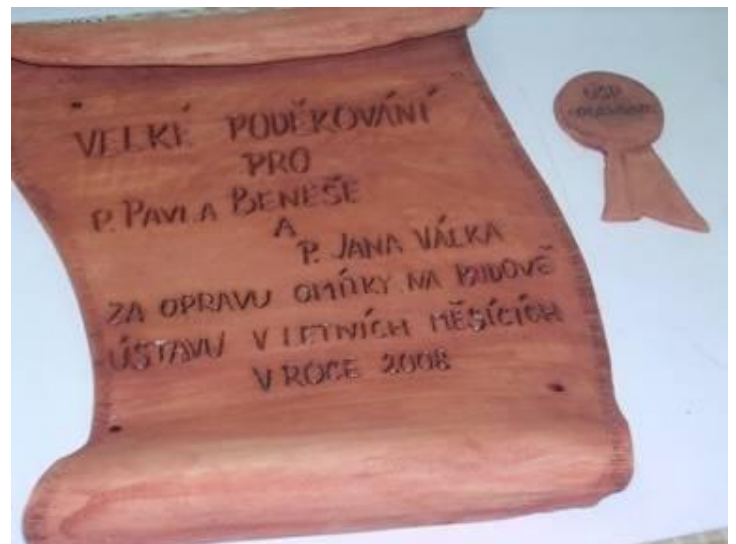 VELKÉ PODĚKOVÁNÍ
PRO
P. PAVLA BENEŠE
A
P. JANA VÁLKA
ZA OPRAVU OMÍTKY NA BUDOVĚ
ÚSTAVU V LETNÍCH MĚSÍCÍCH
V ROCE 2008
ÚSP